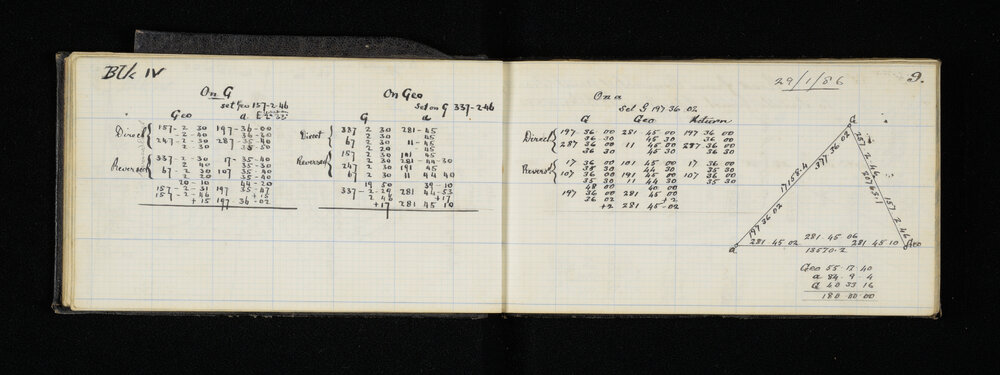 Blk IV
On G
set Geo 157-2-46
Geo a
Direct 157-2 30 197-36-00
-2-40 36-20
247-2 30 287-35-40
2 30
Reversed 337-2-30 17-35-40
2 40 35-30
67-2-30 107 35-40
2-20 35-40
20-10 44-20
157-2-31 197 35-47
157-2-46 +15
+15 197 36-02
On Geo
Set on G 337-2-46
G a
Direct 337 2 30 281-45
2 30 45
67 2 30 11-45
2 20 -45
Reversed 157 2 30 101 45
2 30 281 44-30
247 2 30 191 44
67 2 30 11 44 40
19 50 39-10
337-2-29 281 44-53
2 46 +17
+17 281 45 10
29/1/86
9.
On a
Set G 197 36 02
G Geo Return
Direct 197 36 00 281 45 00 197 36 00
36 30 45 30 36 30
287 36 00 11 45 00 287 36 00
36 30 45 30
Reversed 17 36 00 101 45 00 17 36 00
35 30 44 30 35 30
107 36 00 191 45 00 107 36 00
35 30 11 44 30 35 30
48 00 60 00
197 36 00 281 45 00
36 02 +2
+2 281 45-02
G
197 36 02 17158.4 377 36 02
157 2 46 20765.1 157 2 46
a Geo
281 45 02 281 45 06 281 45 10
13570.2
Geo 55-17-40
a 84-9-4
G 40 33 16
180 00 00